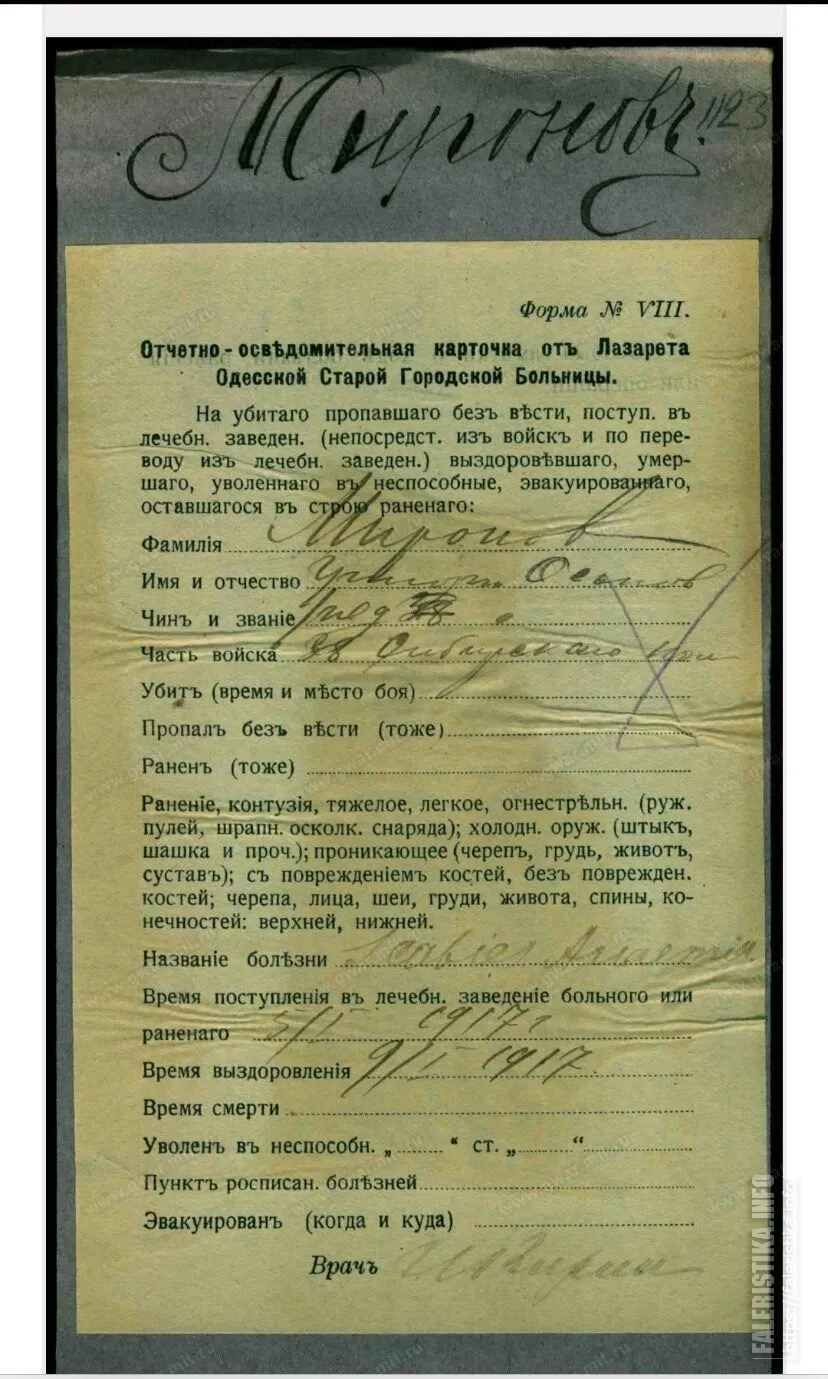 Мироновъ. 1123
Форма № VIII.
Отчетно-освѣдомительная карточка отъ Лазарета
Одесской Старой Городской Больницы.
На убитаго пропавшаго безъ вѣсти, поступ. въ
лечебн. заведен. (непосредст. изъ войскъ и по пере-
воду изъ лечебн. заведен.) выздоровѣвшаго, умер-
шаго, уволеннаго въ неспособные, эвакуированнаго,
оставшагося въ строю раненаго:
Фамилія Миронов
Имя и отчество Осипов
Чинъ и званіе
Часть войска 38 Сибирскаго
Убитъ (время и мѣсто боя)
Пропалъ безъ вѣсти (тоже)
Раненъ (тоже)
Раненіе, контузія, тяжелое, легкое, огнестрѣльн. (руж.
пулей, шрапн. осколк. снаряда); холодн. оруж. (штыкъ,
шашка и проч.); проникающее (черепъ, грудь, животъ,
суставъ); съ поврежденіемъ костей, безъ поврежден.
костей; черепа, лица, шеи, груди, живота, спины, ко-
нечностей: верхней, нижней.
Названіе болѣзни Scabies
Время поступленія въ лечебн. заведеніе больного или
раненаго 5/I 1917 г
Время выздоровленія 9/I 1917.
Время смерти
Уволенъ въ неспособн. „ “ ст. „ “
Пунктъ росписан. болѣзней
Эвакуированъ (когда и куда)
Врачъ
FALERISTIKA.INFO
https://faleristika.info